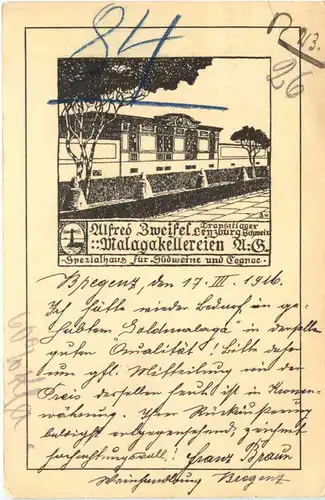 84
213.
26
Alfred Zweifel Transitlager
Lenzburg Schweiz
::Malagakellereien A:G.
Spezialhaus für Südweine und Cognac
Bregenz, den 17. III. 1916.
Ich hätte wieder Bedarf an ge-
"Goldmalaga" in derselben
guten Qualität! Bitte daher
um gfl. Mitteilung wie der
Preis derselben heut ist in Kronen-
währung. Ihrer Rückäußerung
entgegensehend, zeichnet
hochachtungsvoll! Franz Braun
Weinhandlung Bregenz